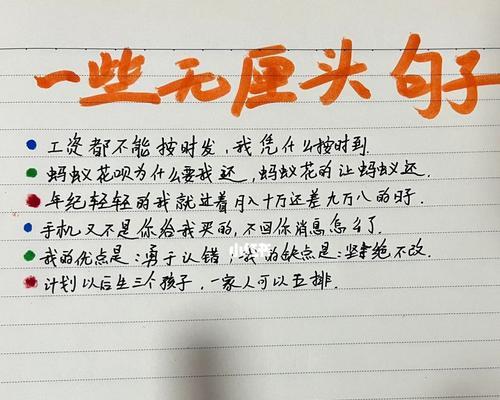 一些无厘头句子
工资都不能按时发，我凭什么按时到.
蚂蚁花呗为什么要我还，蚂蚁花的让蚂蚁还.
年纪轻轻的我就过着月入十万还差九万八的日子.
手机又不是你给我买的，不回你消息怎么了.
我的优点是：勇于认错，我的缺点是：坚决绝不改.
计划以后生三个孩子，一家人可以五排.
小红书